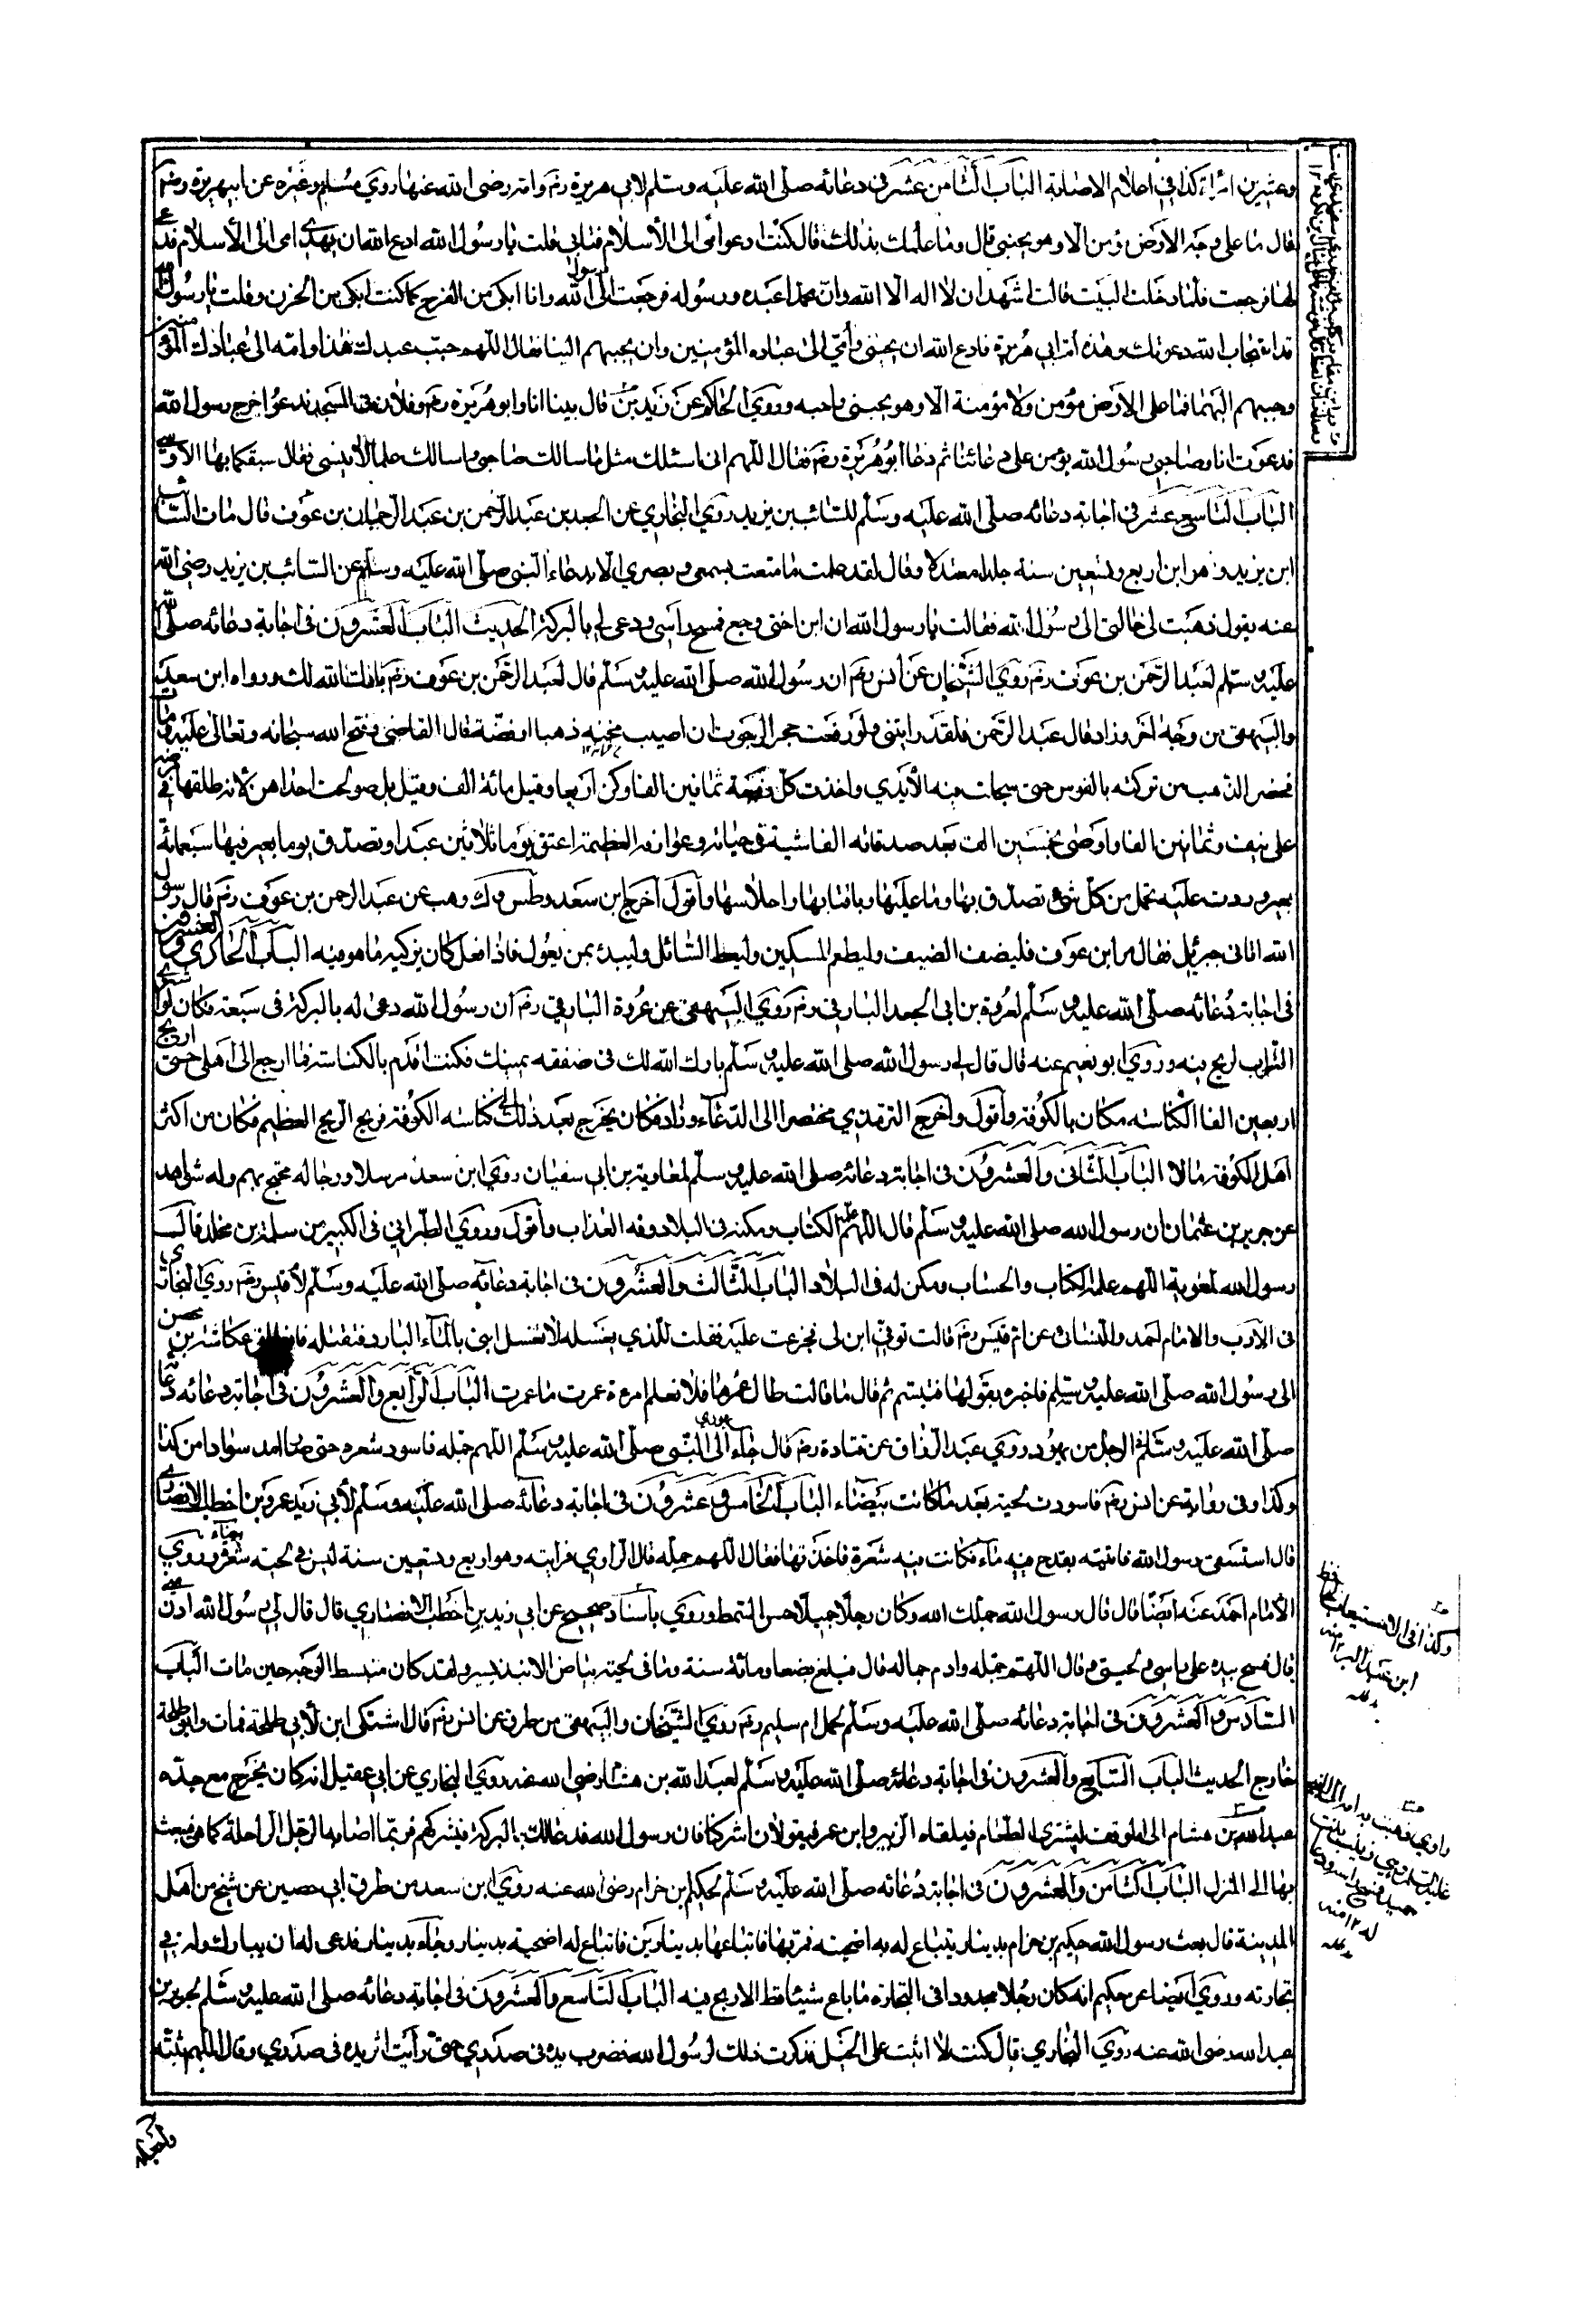 وعشرين امراء كذا في اعلام الاصابة الباب الثامن عشر في دعائه صلى الله عليه وسلم لابي هريرة رضم وامه رضى الله عنها روي مسلم وغيره عن ابيهريرة رضم
قال ما على وجه الارض مؤمن الا وهو يحبني قال وما علمك بذلك قال كنت ادعوا امى الى الاسلام فتابى فقلت يا رسول الله ادع الله ان يهدي امى الى الاسلام فدعى
لها فرجعت فلما دخلت البيت قالت اشهد ان لا اله الا الله وان محمدا عبده ورسوله فرجعت الى رسول الله وانا ابكى من الفرح كما كنت ابكى من الحزن وقلت يا رسول الله
قد استجاب الله دعوتك وهذه ام ابي هريرة فادع الله ان يحببنى وأمي الى عباده المؤمنين وان يحببهم الينا فقال اللهم حبب عبدك هذا وامه الى عبادك المؤمنين
وحببهم اليهما فما على الارض مؤمن ولا مؤمنة الا وهو يحبنى واحبه وروي الحاكم عن زيد بن قال بينا انا وابو هريرة رضم وفلان في المسجد ندعوا خرج رسول الله
فدعوت انا وصاحبي ورسول الله يؤمن على دعائنا ثم دعا ابو هريرة رضم فقال اللهم انى اسئلك مثل ما سالك صاحبي واسالك علما لا ينسى فقال سبقكما بها الاوسي
الباب التاسع عشر في اجابة دعائه صلى الله عليه وسلم للسائب بن يزيد روي البخاري عن الجعد بن عبد الرحمن بن عبد الرحمان بن عوف قال مات السائب
ابن يزيد وهو ابن اربع وتسعين سنة جلدا معتدلا وقال لقد علمت ما متعت بسمعي وبصري الا بدعاء النبي صلى الله عليه وسلم عن السائب بن يزيد رضي الله
عنه يقول ذهبت لي خالتي الى رسول الله فقالت يا رسول الله ان ابن اختي وجع فمسح راسي ودعى لي بالبركة الحديث الباب العشرون في اجابة دعائه صلى الله
عليه وسلم لعبد الرحمن بن عوف رضم روي الشيخان عن انس رضم ان رسول الله صلى الله عليه وسلم قال لعبد الرحمن بن عوف رضم بارك الله لك ورواه ابن سعد
والبيهقي من وجه اخر وزاد قال عبد الرحمن فلقد رايتني ولو رفعت حجرا لرجوت ان اصيب تحته ذهبا او فضة قال القاضي وفتح الله سبحانه وتعالى عليه ومات
فحضر الذهب من تركته بالفوس حتى مجلت منه الايدي واخذت كل زوجة ثمانين الفا وكن اربعا وقيل مائة الف وقيل بل صولحت احداهن لانه طلقها في مرضه
على نيف وثمانين الفا واوصى بخمسين الف بعد صدقاته الفاشية في حياته وعوارفه العظيمة اعتق يوما ثلاثين عبدا وتصدق يوما بعير فيها سبعمائة
بعير وردت عليه تحمل من كل شئ تصدق بها وما عليها وباقتابها واحلاسها واقول اخرج ابن سعد وطس وك وهب عن عبد الرحمن بن عوف رضم قال رسول
الله اتاني جبرئيل فقال مر ابن عوف فليضف الضيف وليطعم المسكين وليعط السائل وليبدء بمن يعول فاذا فعل كان تزكية ما هو فيه الباب الحادي والعشرون
في اجابة دعائه صلى الله عليه وسلم لعروة بن ابي الجعد البارقي رضم روي البيهقي عن عروة البارقي رضم ان رسول الله دعى له بالبركة في بيعته فكان لو اشترى
التراب لربح فيه وروي ابو نعيم عنه قال قال لي رسول الله صلى الله عليه وسلم بارك الله لك في صفقة يمينك فكنت اقدم بالكناسة فما ارجع الى اهلي حتى اربح
اربعين الفا الكناسة مكان بالكوفة واقول واخرج الترمذي مختصرا الى الدعاء وزاد فكان يخرج بعد ذلك الى كناسه الكوفة فربح الربح العظيم فكان من اكثر
اهل الكوفة مالا الباب الثاني والعشرون في اجابة دعائه صلى الله عليه وسلم لمعاوية بن ابي سفيان روي ابن سعد مرسلا ورجاله محتج بهم وله شواهد
عن جرير بن عثمان ان رسول الله صلى الله عليه وسلم قال اللهم علمه الكتاب ومكنه في البلاد وقه العذاب واقول وروي الطبراني في الكبير من سلمة بن مخلد قال
رسول الله لمعوية اللهم علمه الكتاب والحساب ومكن له في البلاد الباب الثالث والعشرون في اجابة دعائه صلى الله عليه وسلم لام قيس رضم روي البخاري
في الادب والامام احمد والنسائي عن ام قيس رضم قالت توفي ابن لي فجزعت عليه فقلت للذي يغسله لا تغسل ابني بالماء البارد فتقتله عكاشة بن محصن
الى رسول الله صلى الله عليه وسلم فاخبره بقولها فتبسم ثم قال ما قالت طال عمرها فلا نعلم امرءة عمرت ما عمرت الباب الرابع والعشرون في اجابة دعائه
صلى الله عليه وسلم لرجل من يهود روي عبد الرزاق عن قتادة رضم قال جاء يهودي الى النبي صلى الله عليه وسلم اللهم جمله فاسود شعره حتى صار اشد سوادا من كذا
وكذا وفي رواية عن انس رضم فاسودت لحيته بعد ما كانت بيضاء الباب الخامس وعشرون في اجابة دعائه صلى الله عليه وسلم لابي زيد عمرو بن اخطب الانصاري
قال استسقى رسول الله فاتيته بقدح فيه ماء فكانت فيه شعرة فاخذتها فقال اللهم جمله قال الراوي فرايته وهو اربع وتسعين سنة ليس في لحيته شعرة بيضاء وروي
الامام احمد عنه ايضا قال قال رسول الله جملك الله وكان رجلا جميلا حسن السمط وروي باسناد صحيح عن ابي زيد بن اخطب الانصاري قال قال لي رسول الله ادن مني
قال فمسح بيده على راسي ولحيتي وقال اللهم جمله وادم جماله قال فبلغ بضعا ومائة سنة وما في لحيته بياض الا نبذ يسير ولقد كان منبسط الوجه حين مات الباب
السادس والعشرون في اجابة دعائه صلى الله عليه وسلم لحمل ام سليم رضم روي الشيخان والبيهقي من طرق عن انس رضم قال اشتكى ابن لابي طلحة فمات وابو طلحة
خارج الحديث الباب السابع والعشرون في اجابة دعائه صلى الله عليه وسلم لعبد الله بن هشام رضي الله عنه روي البخاري عن ابي عقيل انه كان يخرج مع جده
عبد الله بن هشام الى السوق ليشتري الطعام فيلقاه الزبير وابن عمر فيقولان اشركنا فان رسول الله قد دعا لك بالبركة فيشركهم فربما اصاب الرجل الراحلة كما هي فيبعث
بها الى المنزل الباب الثامن والعشرون في اجابة دعائه صلى الله عليه وسلم لحكيم بن حزام رضي الله عنه روي ابن سعد من طرق ابي حصين عن شيخ من اهل
المدينة قال بعث رسول الله حكيم بن حزام بدينار يتباع له به اضحية فمر بها فابتاعها بدينارين فابتاع له اضحية بدينار وجاءه بدينار فدعى له ان يبارك له في
تجارته وروي ايضا عن حكيم انه كان رجلا مجدودا في التجارة ما باع شيئا قط الا ربح فيه الباب التاسع والعشرون في اجابة دعائه صلى الله عليه وسلم لجرير بن
عبد الله رضي الله عنه روي البخاري قال كنت لا اثبت على الخيل فذكرت ذلك لرسول الله فضرب يده في صدري حتى رايت اثر يده في صدري وقال اللهم ثبته
وكذا في الاستيعاب
ابن عبد البر ١٢ منه
واجعله